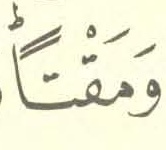 وَمَقْتًاؕ